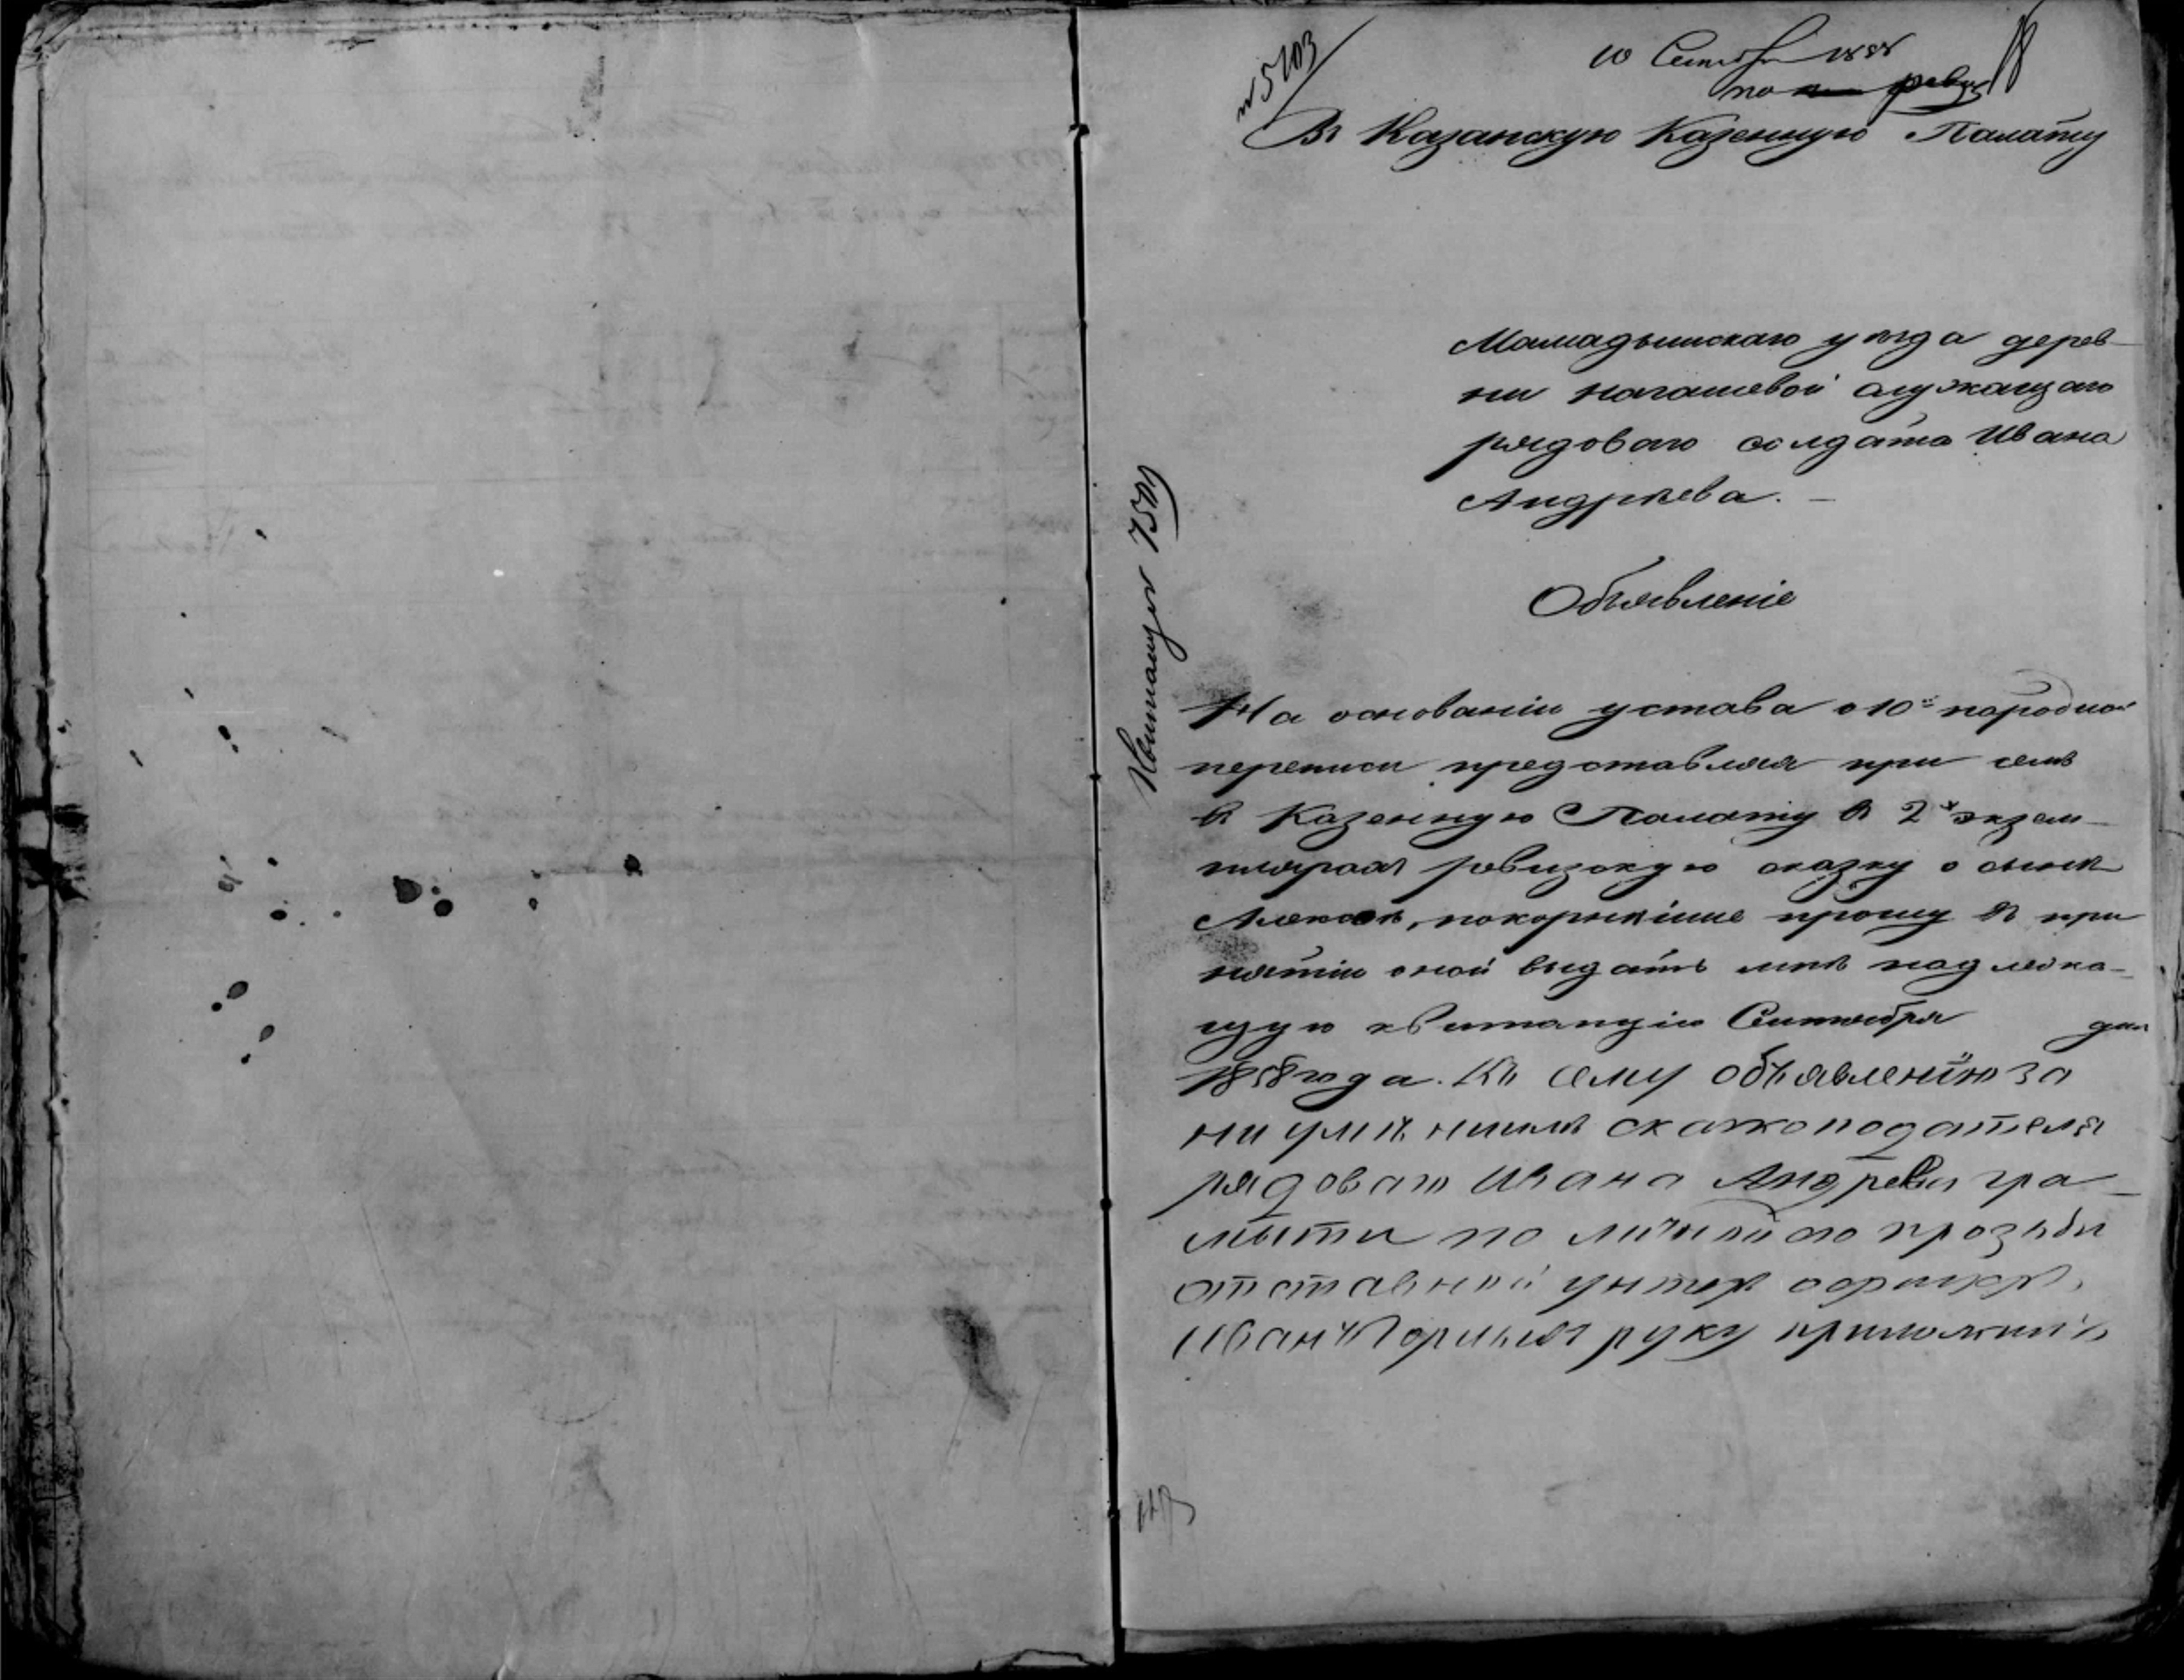 № 5103
10 Сентября 1858
по ревиз
18
Въ Казанскую Казенную Палату
Мамадышскаго уѣзда дерев
ни служащаго
рядоваго солдата Ивана
Андрѣева. —
Объявленіе
Квитанція 7501
На основаніи устава о 10й народной
переписи представляя при семъ
въ Казенную Палату въ 2х экзем
плярахъ ревизскую сказку о сынѣ
Алексѣѣ, покорнѣйше прошу въ при
нятіи оной выдать мнѣ надлежа-
щую квитанцію Сентября дня
1858 года. Къ сему объявленію за
ни умѣниимъ скаскоподателя
рядоваго Ивана Андрева гра
мыти по личной его прозьби
отставной унтеръ офицеръ
Иванъ руку приложилъ